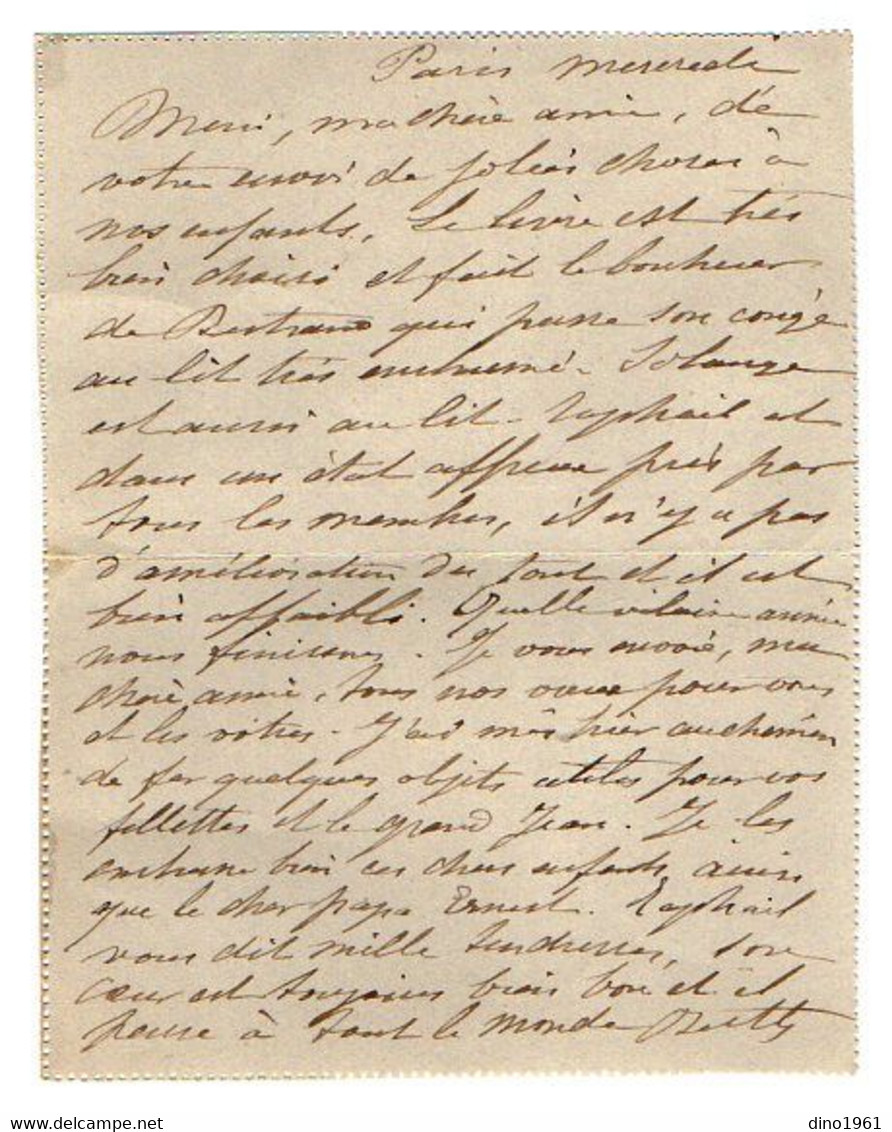 Paris mercredi
Merci, ma chère amie, de
votre envoi de jolies choses à
nos enfants. Le livre est très
bien choisi et fait le bonheur
de Bertrand qui passe son congé
au lit très enrhumé. Solange
est aussi au lit. Raphaël est
dans un état affreux pris par
tous les membres, il n'y a pas
d'amélioration du tout et il est
bien affaibli. Quelle vilaine année
nous finissons. Je vous envoie, ma
chère amie, tous nos vœux pour vous
et les vôtres. J'ai mis hier au chemin
de fer quelques objets utiles pour vos
fillettes et le grand Jean. Je les
embrasse bien ces chers enfants, ainsi
que le cher papa Ernest. Raphaël
vous dit mille tendresses, son
cœur est toujours bien bon et il
pense à tout le monde Betty
delcampe.net
dino1961